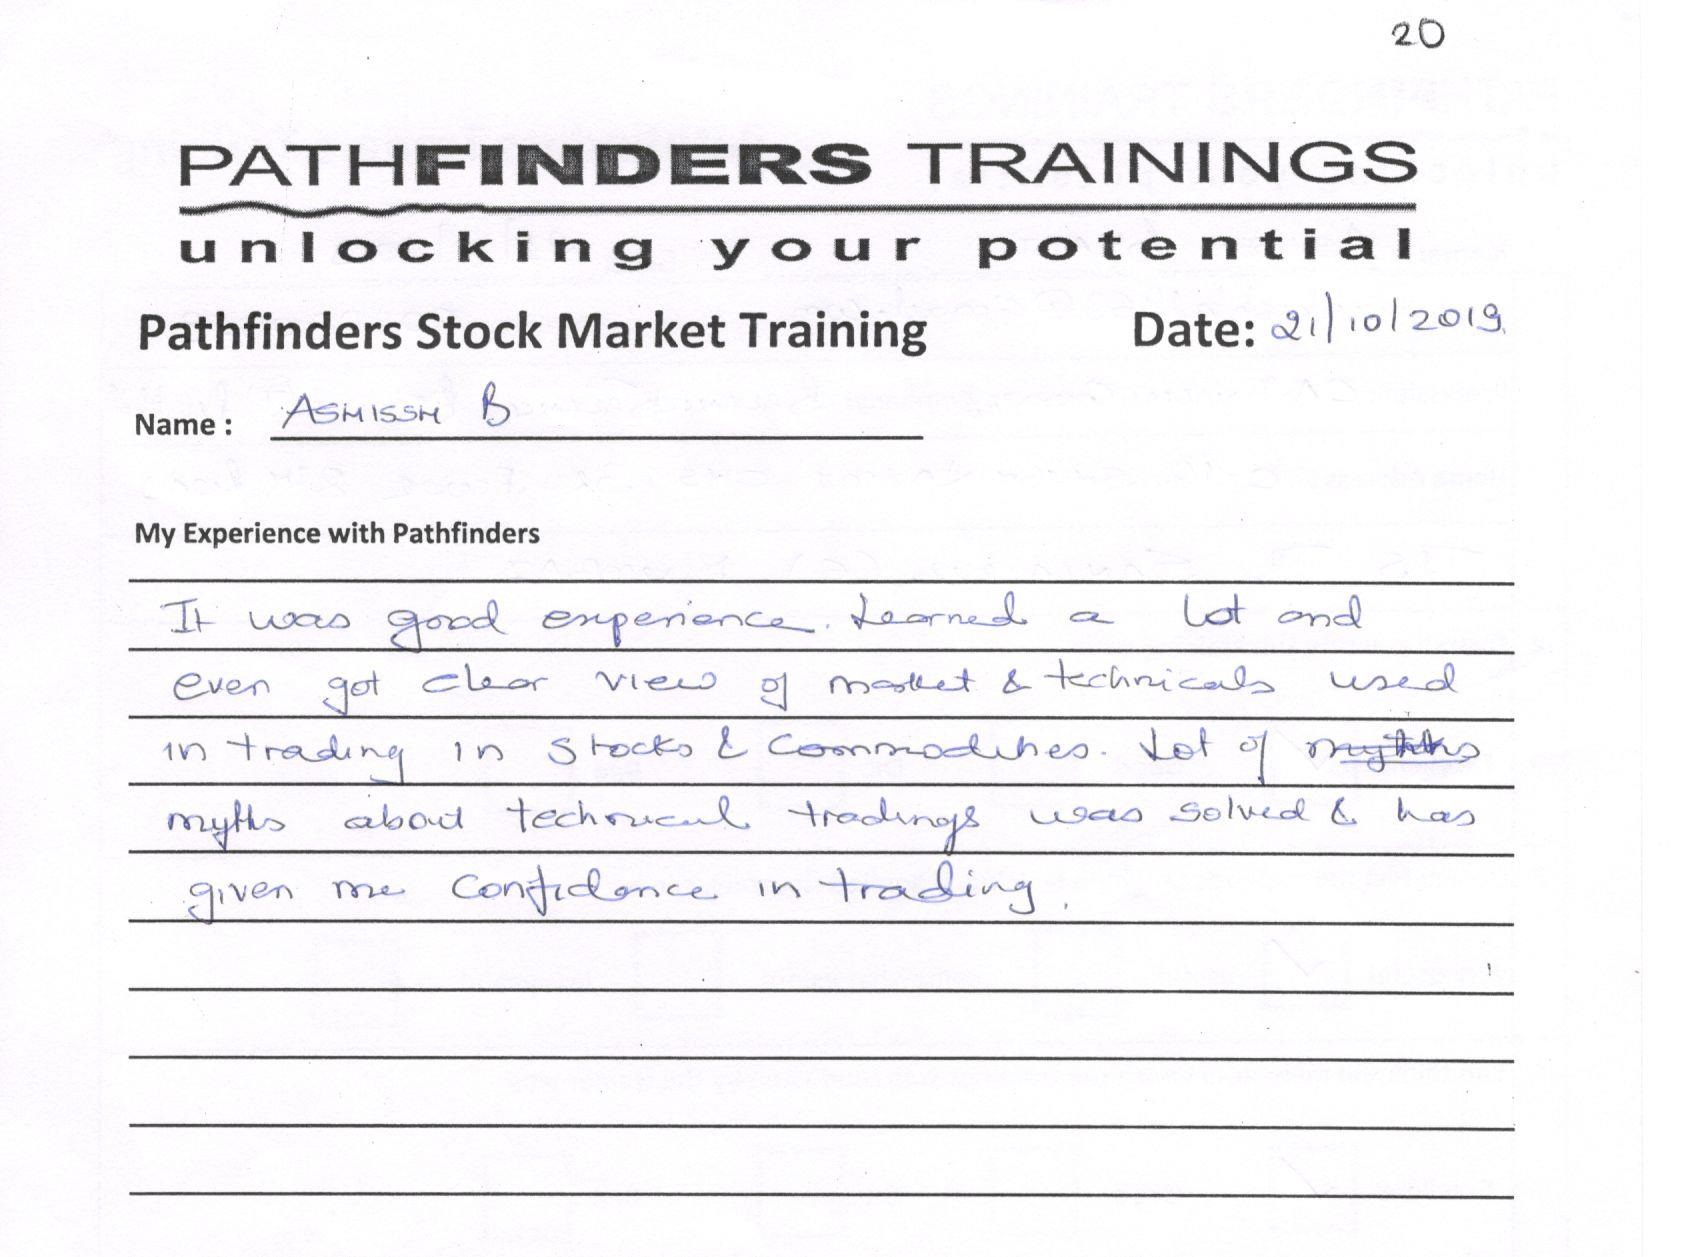 20
PATHFINDERS TRAININGS
unlocking your potential
Pathfinders Stock Market Training Date: 21/10/2019
Name : ASHISSH B
My Experience with Pathfinders
It was good experience. Learned a lot and
even got clear view of market & technicals used
in trading in stocks & Commodities. Lot of myths
myths about technical tradings was solved & has
given me confidence in trading.